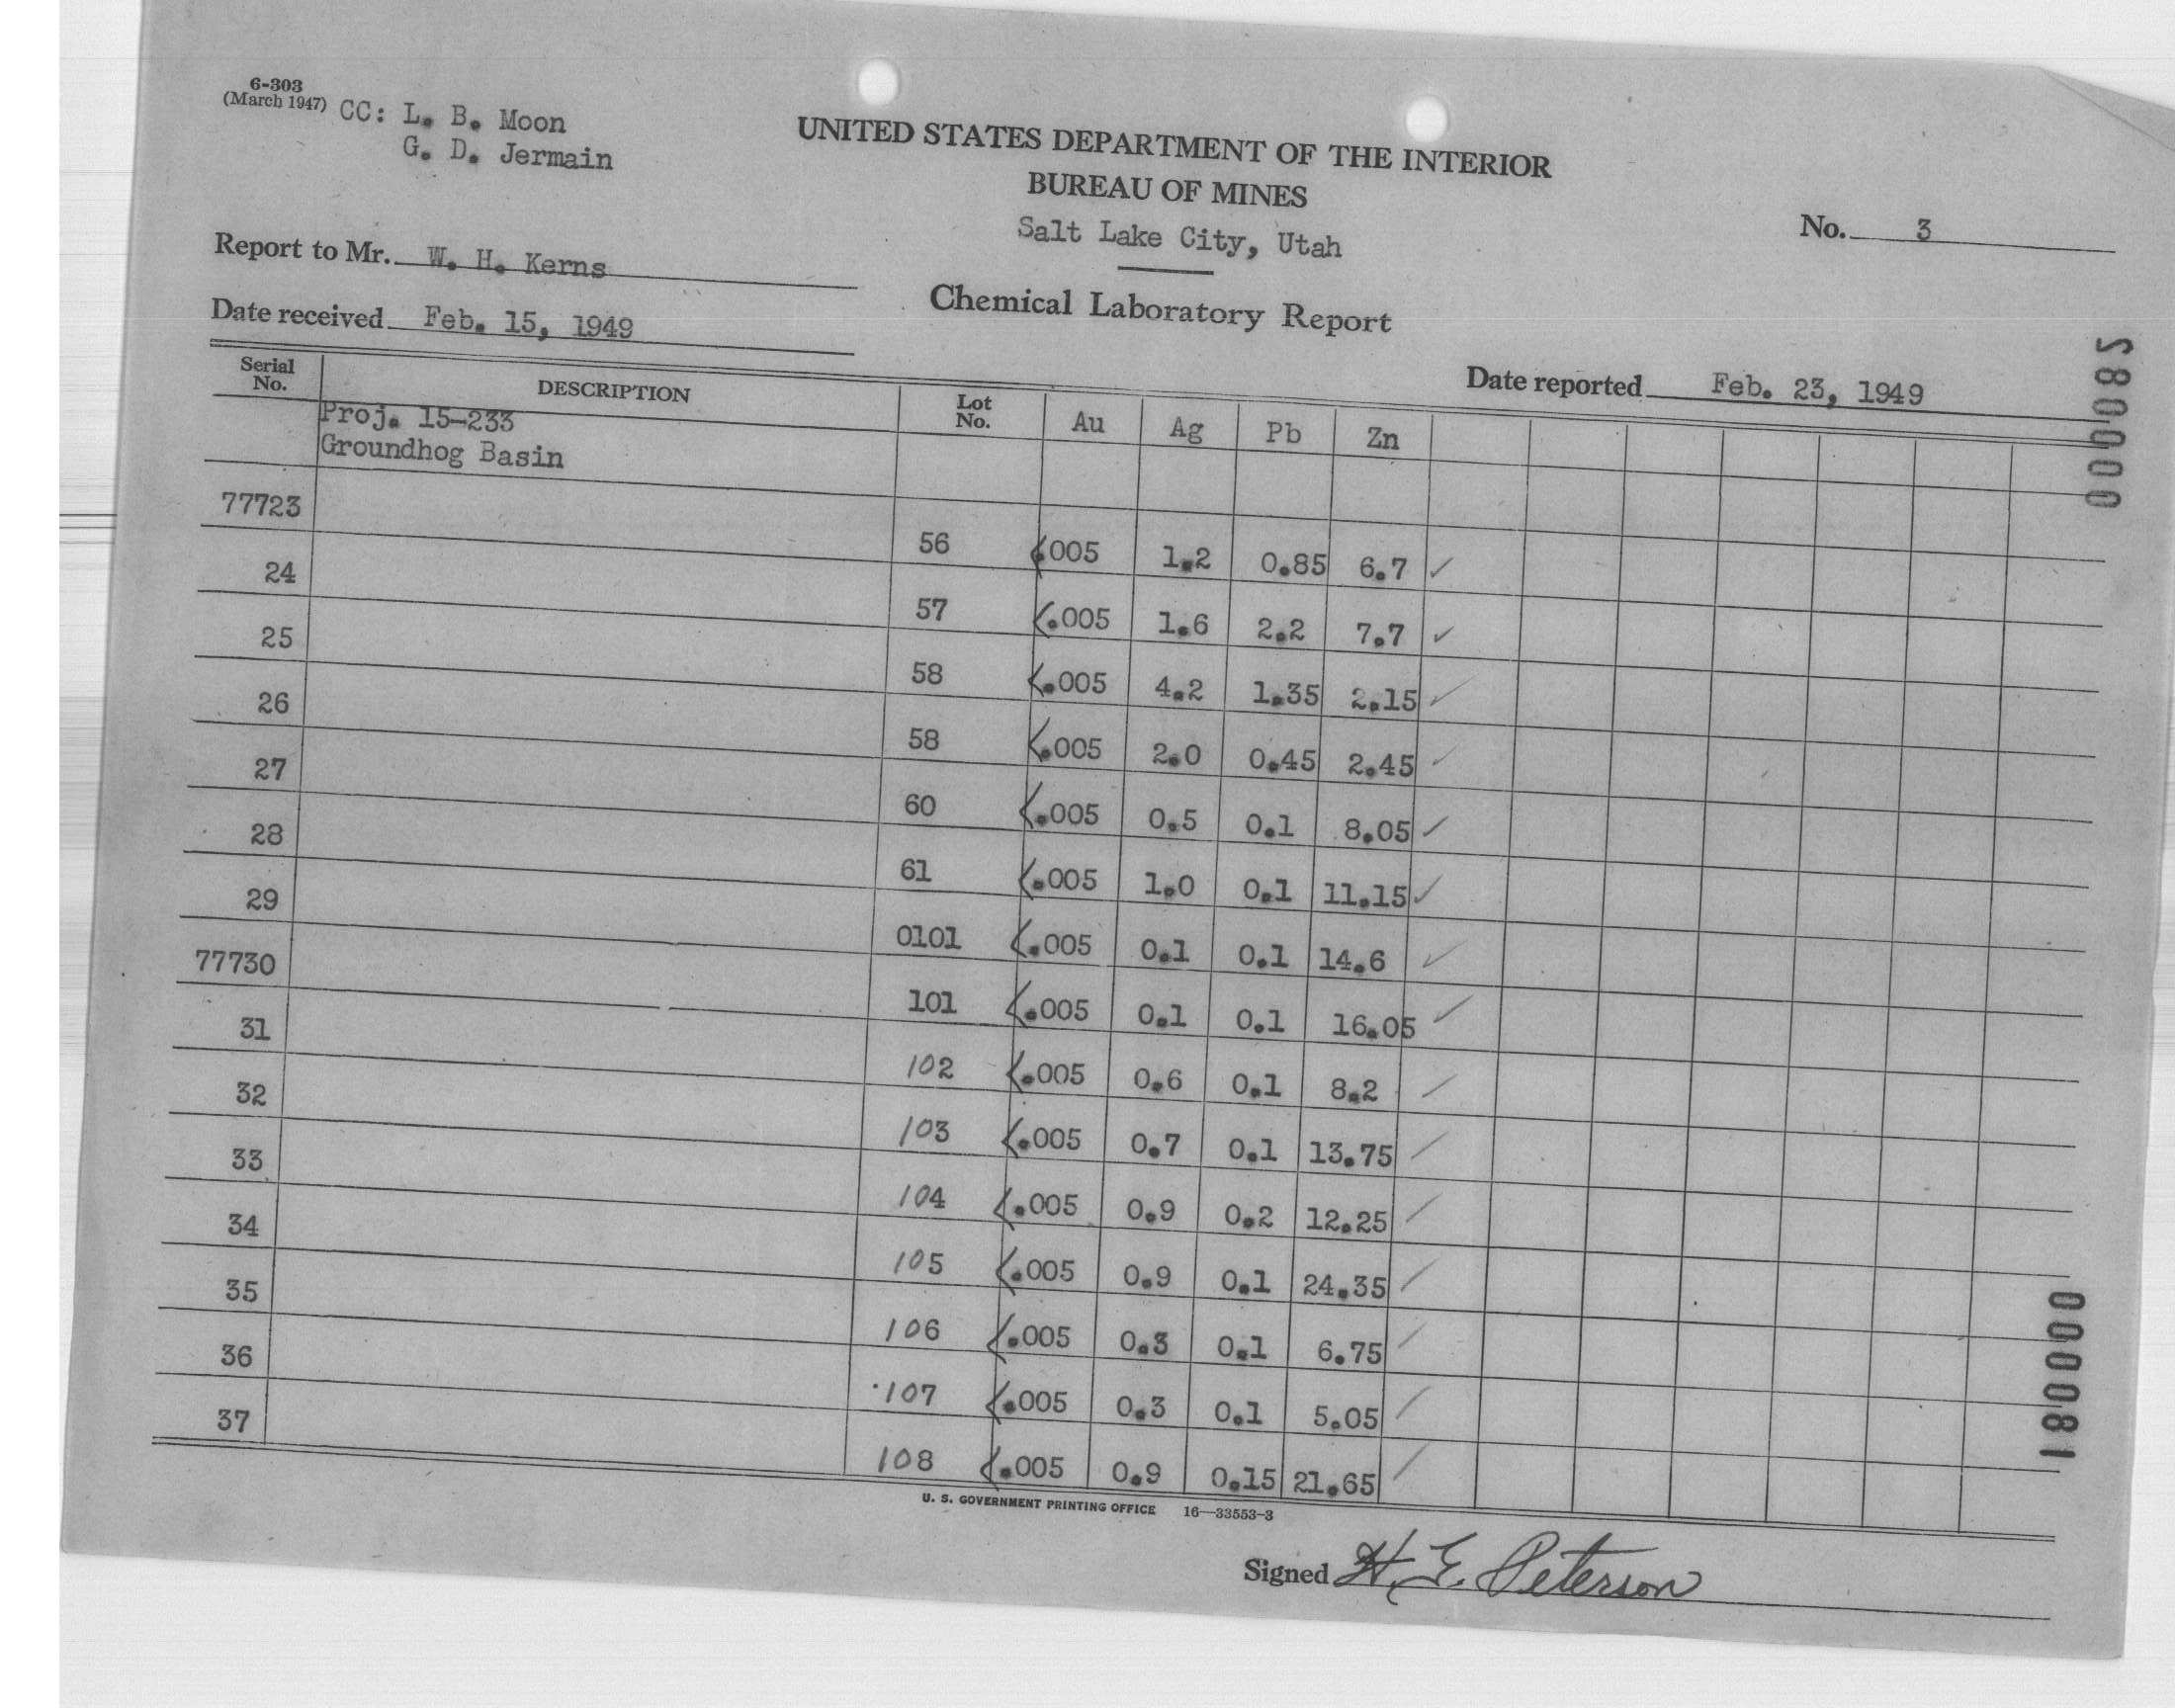 6-303
(March 1947)
CC: L. B. Moon
G. D. Jermain
UNITED STATES DEPARTMENT OF THE INTERIOR
BUREAU OF MINES
Salt Lake City, Utah
No. 3
Report to Mr. W. H. Kerns
Chemical Laboratory Report
Date received Feb. 15, 1949
Date reported Feb. 23, 1949
Serial No. DESCRIPTION Lot No. Au Ag Pb Zn
Proj. 15-233
Groundhog Basin
77723 56 <005 1.2 0.85 6.7 ✓
24 57 <.005 1.6 2.2 7.7 ✓
25 58 <.005 4.2 1.35 2.15 ✓
26 58 <.005 2.0 0.45 2.45 ✓
27 60 <.005 0.5 0.1 8.05 ✓
28 61 <.005 1.0 0.1 11.15 ✓
29 0101 <.005 0.1 0.1 14.6 ✓
77730 101 <.005 0.1 0.1 16.05 ✓
31 102 <.005 0.6 0.1 8.2 ✓
32 103 <.005 0.7 0.1 13.75 ✓
33 104 <.005 0.9 0.2 12.25 ✓
34 105 <.005 0.9 0.1 24.35 ✓
35 106 <.005 0.3 0.1 6.75 ✓
36 107 <.005 0.3 0.1 5.05 ✓
37 108 <.005 0.9 0.15 21.65 ✓
U. S. GOVERNMENT PRINTING OFFICE 16—33553-3
Signed H. E. Peterson
000082
000081